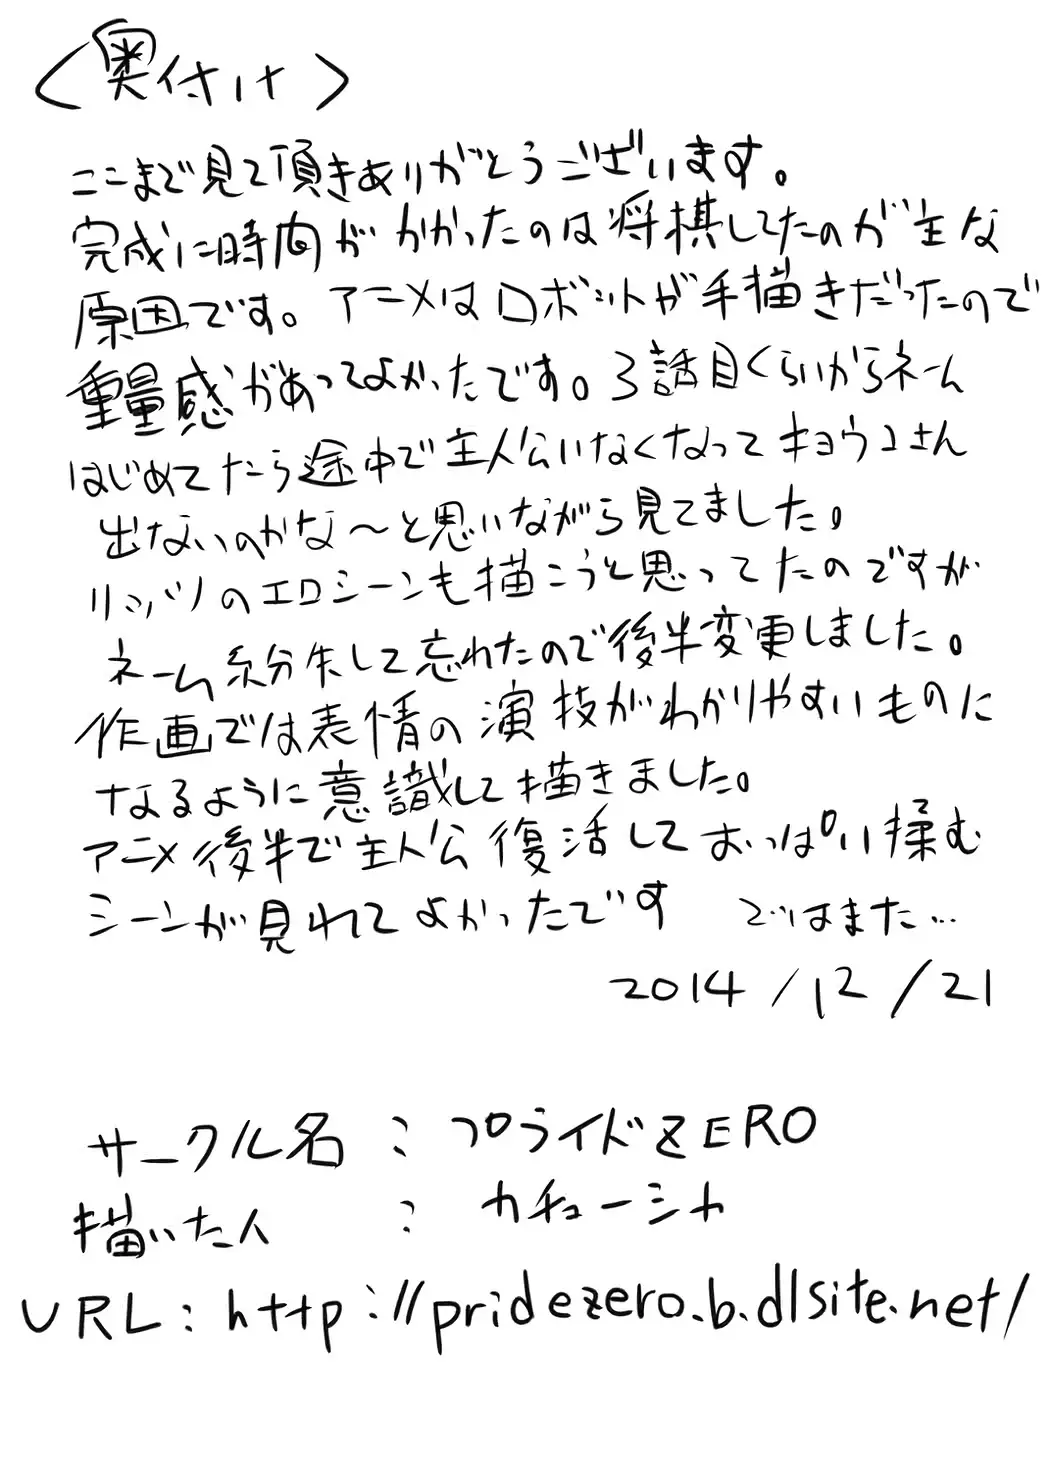 <奥付け>
ここまで見て頂きありがとうございます。
完成に時間がかかったのは将棋してたのが主な
原因です。アニメはロボットが手描きだったので
重量感があってよかったです。3話目くらいからネーム
はじめてたら途中で主人公いなくなってキョウコさん
出ないのかな〜と思いながら見てました。
リッツのエロシーンも描こうと思ってたのですが
ネーム紛失して忘れたので後半変更しました。
作画では表情の演技がわかりやすいものに
なるように意識して描きました。
アニメ後半で主人公復活しておっぱい揉む
シーンが見れてよかったです ではまた…
2014/12/21
サークル名:プライドZERO
描いた人:カチューシャ
URL:http://pridezero.b.dlsite.net/